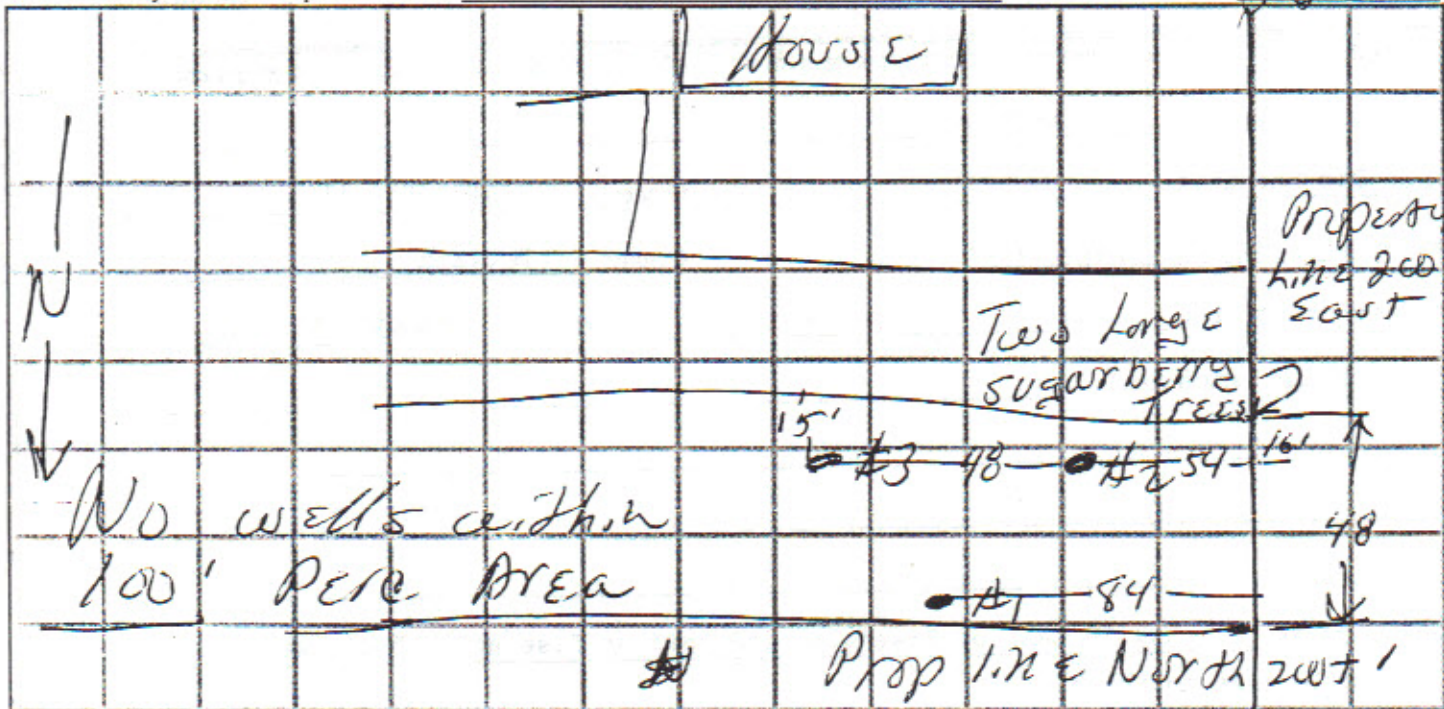 House
N
Property
Line 200
East
Two Large
sugarberry
Trees
15'
#3 48 #2 54 16'
48
No wells within
100' Perc. Area
#1 84
Prop line North 200+'